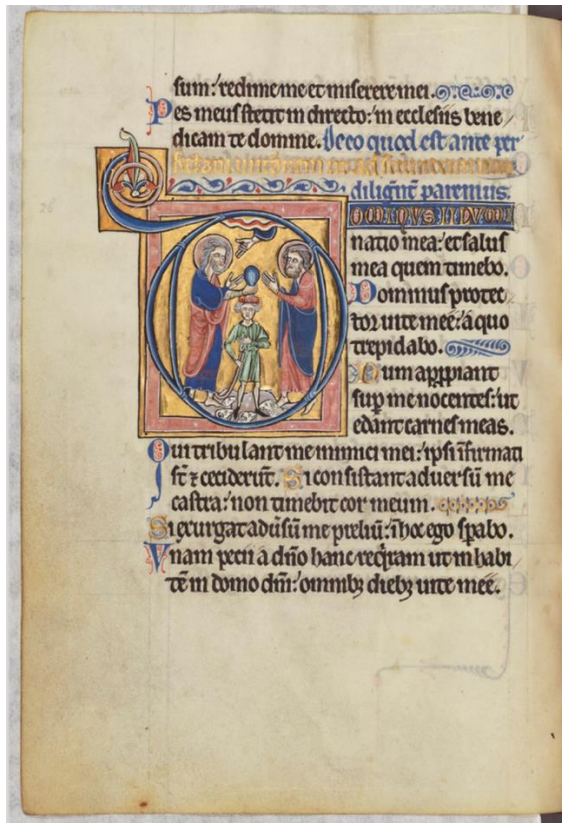 sum: redime me et miserere mei.
Pes meus stetit in directo: in ecclesiis bene
dicam te domine. De eo quod est ante per
diligent parentius.
DOMINUS ILLUMI
natio mea: et salus
mea quem timebo.
Dominus protec
tor uite mee: a quo
trepidabo.
Dum appͣpiant
sup me nocentes: ut
edant carnes meas.
Qui tribulant me inimici mei: ipsi ĩfirmati
st̃ ⁊ ceciderũt. Si consistant aduersũ me
castra: non timebit cor meum.
Si exurgat aduͥsũ me preliũ: ĩ hoc ego spabo.
Unam petii a dño hanc reqͥram ut inhabi
tẽ in domo dñi: omnibꝫ diebꝫ uite mee.